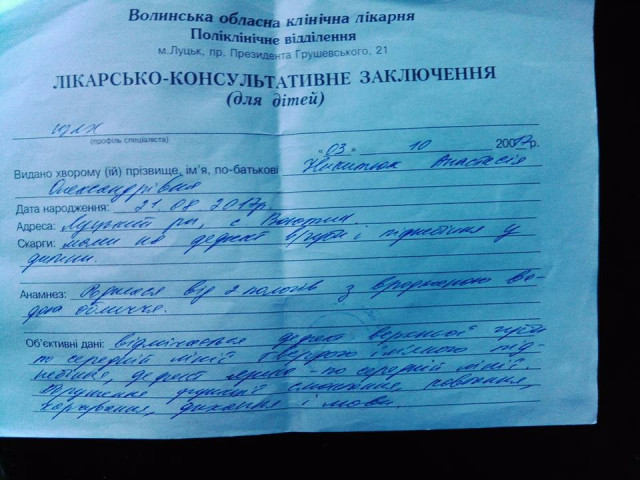 Волинська обласна клінічна лікарня
Поліклінічне відділення
м.Луцьк, пр. Президента Грушевського, 21
ЛІКАРСЬКО-КОНСУЛЬТАТИВНЕ ЗАКЛЮЧЕННЯ
(для дітей)
щлх
(профіль спеціаліста)
"03" 10 2017р.
Видано хворому (ій) прізвище, ім'я, по-батькові Никитюк Анастасія
Олександрівна
Дата народження: 21.08.2017р.
Адреса: Луцький р-н, с.
Скарги: мами на дефект в/губи і піднебіння у
дитини.
Анамнез: Родилася від 2 пологів з вродженою ва-
дою обличчя.
Об'єктивні дані: відмічається дефект верхньої губи
по середній лінії твердого і мілкого під-
небіння, дефект - по середній лінії.
Порушення функції смоктання, ковтання,
харчування, дихання і мови.